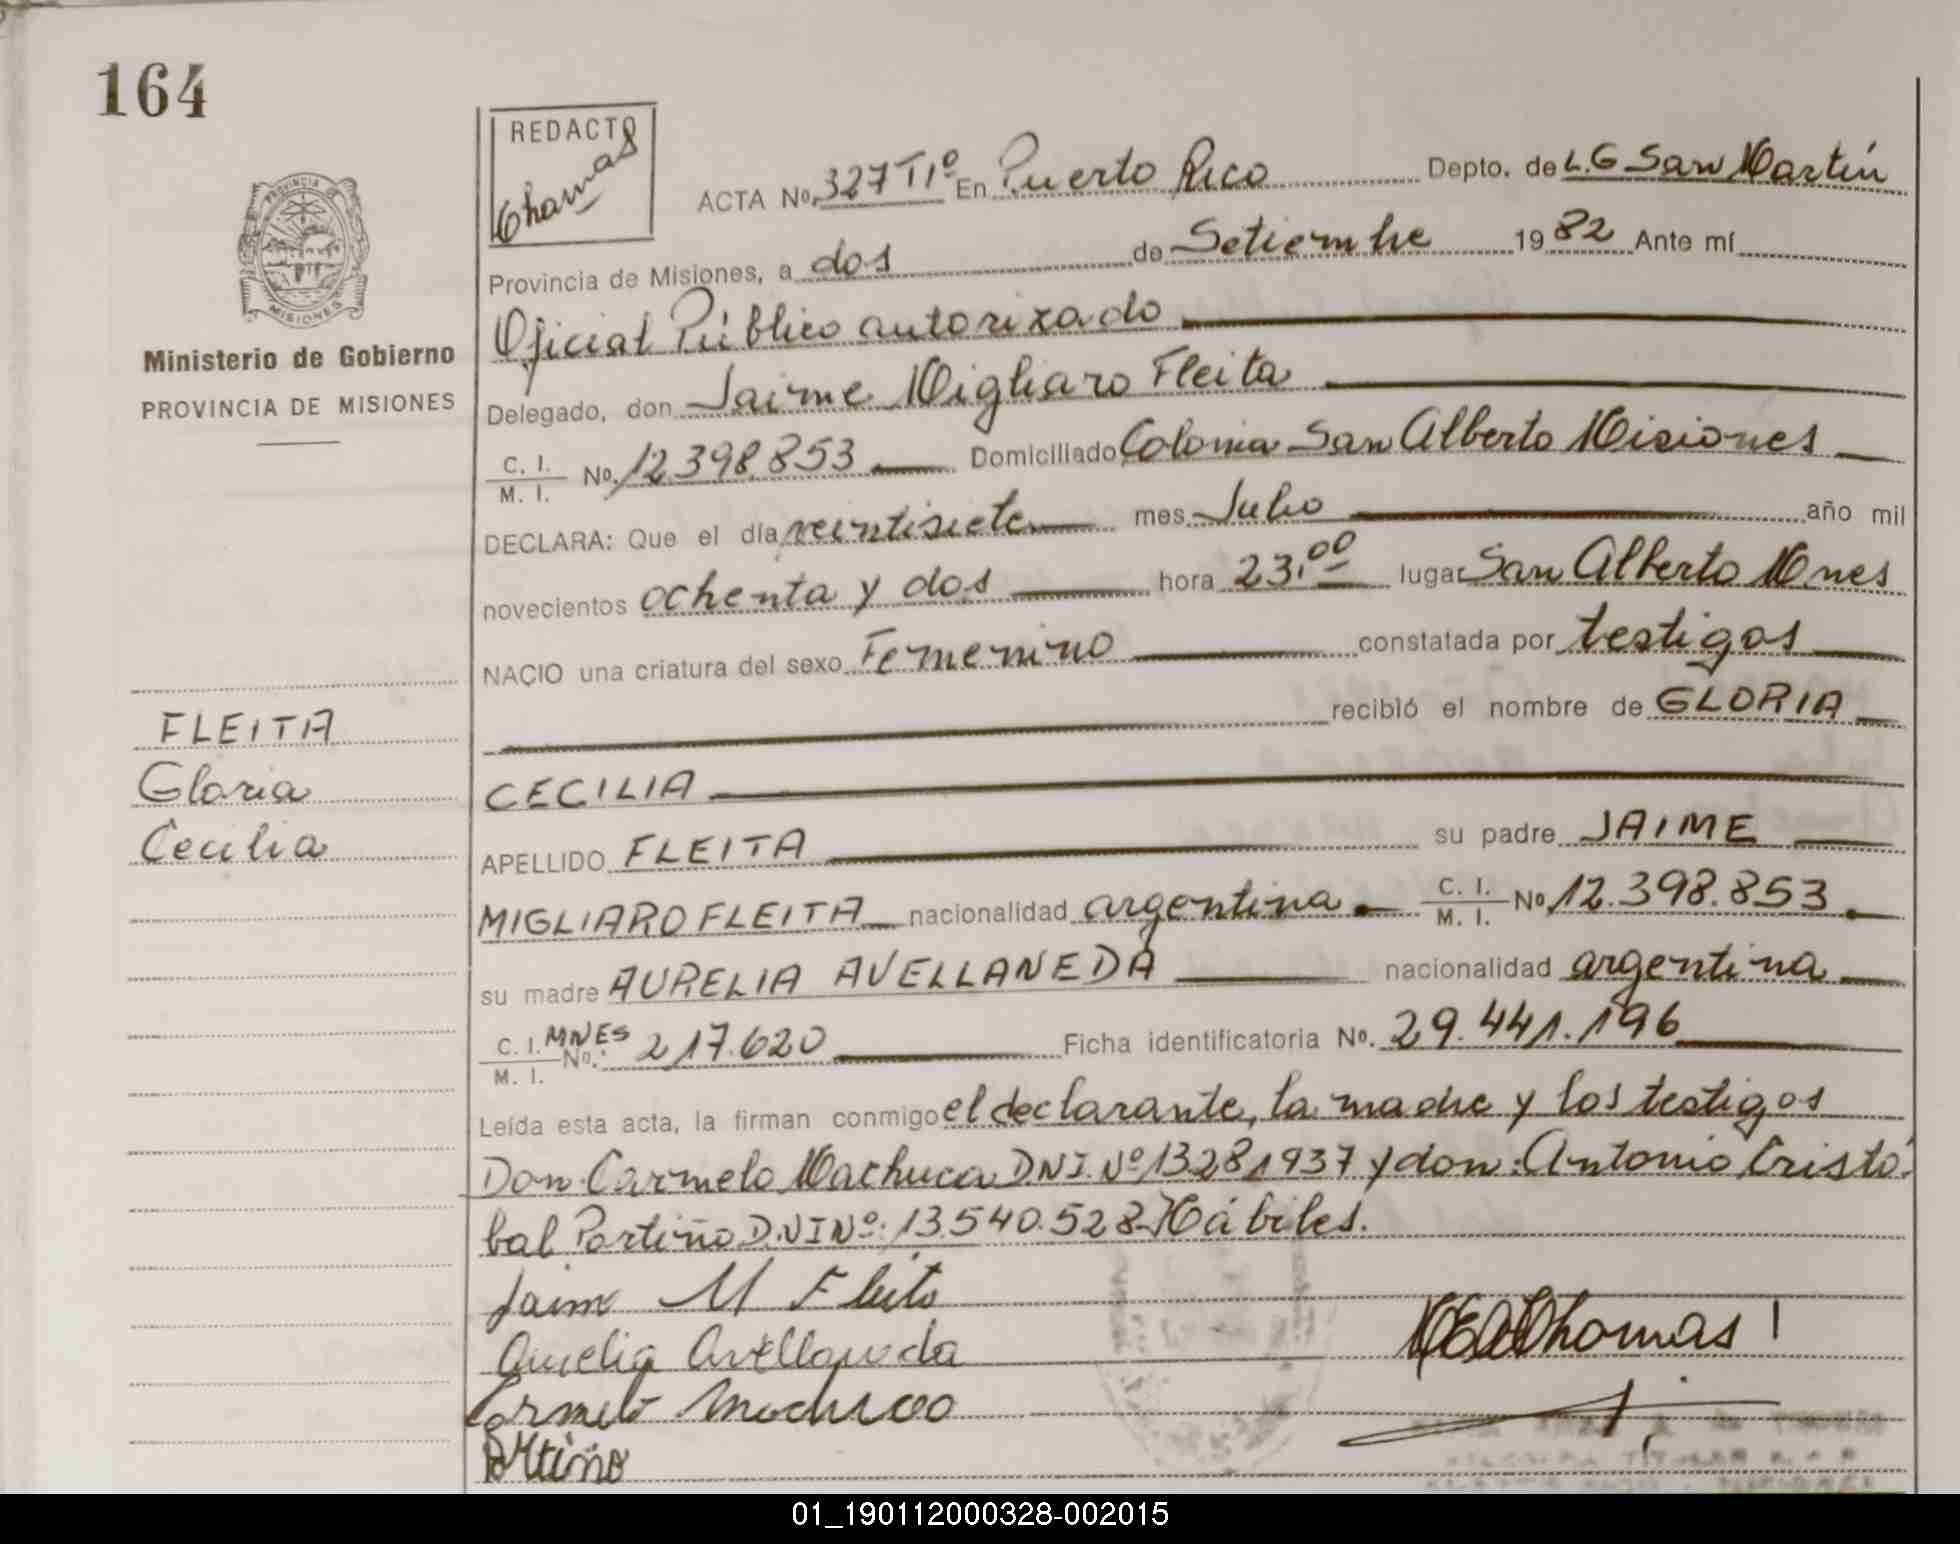 164
REDACTO
Thomas
PROVINCIA DE
MISIONES
Ministerio de Gobierno
PROVINCIA DE MISIONES
ACTA No. 327 TIº En Puerto Rico Depto. de L.G San Martín
Provincia de Misiones, a dos de Setiembre 1982 Ante mí
Oficial Público autorizado
Delegado, don Jaime Migliaro Fleita
C. I. / M. I. No. 12.398.853 Domiciliado Colonia San Alberto Misiones
DECLARA: Que el día veintisiete mes Julio año mil
novecientos ochenta y dos hora 23.00 lugar San Alberto Mnes
NACIO una criatura del sexo Femenino constatada por testigos
recibió el nombre de GLORIA
CECILIA
APELLIDO FLEITA su padre JAIME
MIGLIARO FLEITA nacionalidad argentina C. I. / M. I. No 12.398.853
su madre AURELIA AVELLANEDA nacionalidad argentina
C. I. / M. I. MNES No.: 217.620 Ficha identificatoria No. 29.441.196
Leída esta acta, la firman conmigo el declarante, la madre y los testigos
Don Carmelo Machuca D.N.I. Nº 13281937 y don: Antonio Cristó
bal Portiño D.N.I Nº: 13.540.528 Hábiles.
FLEITA
Gloria
Cecilia
Jaime M Fleita
Aurelia Avellaneda
Carmelo Machuca
Portiño
Thomas
01_190112000328-002015